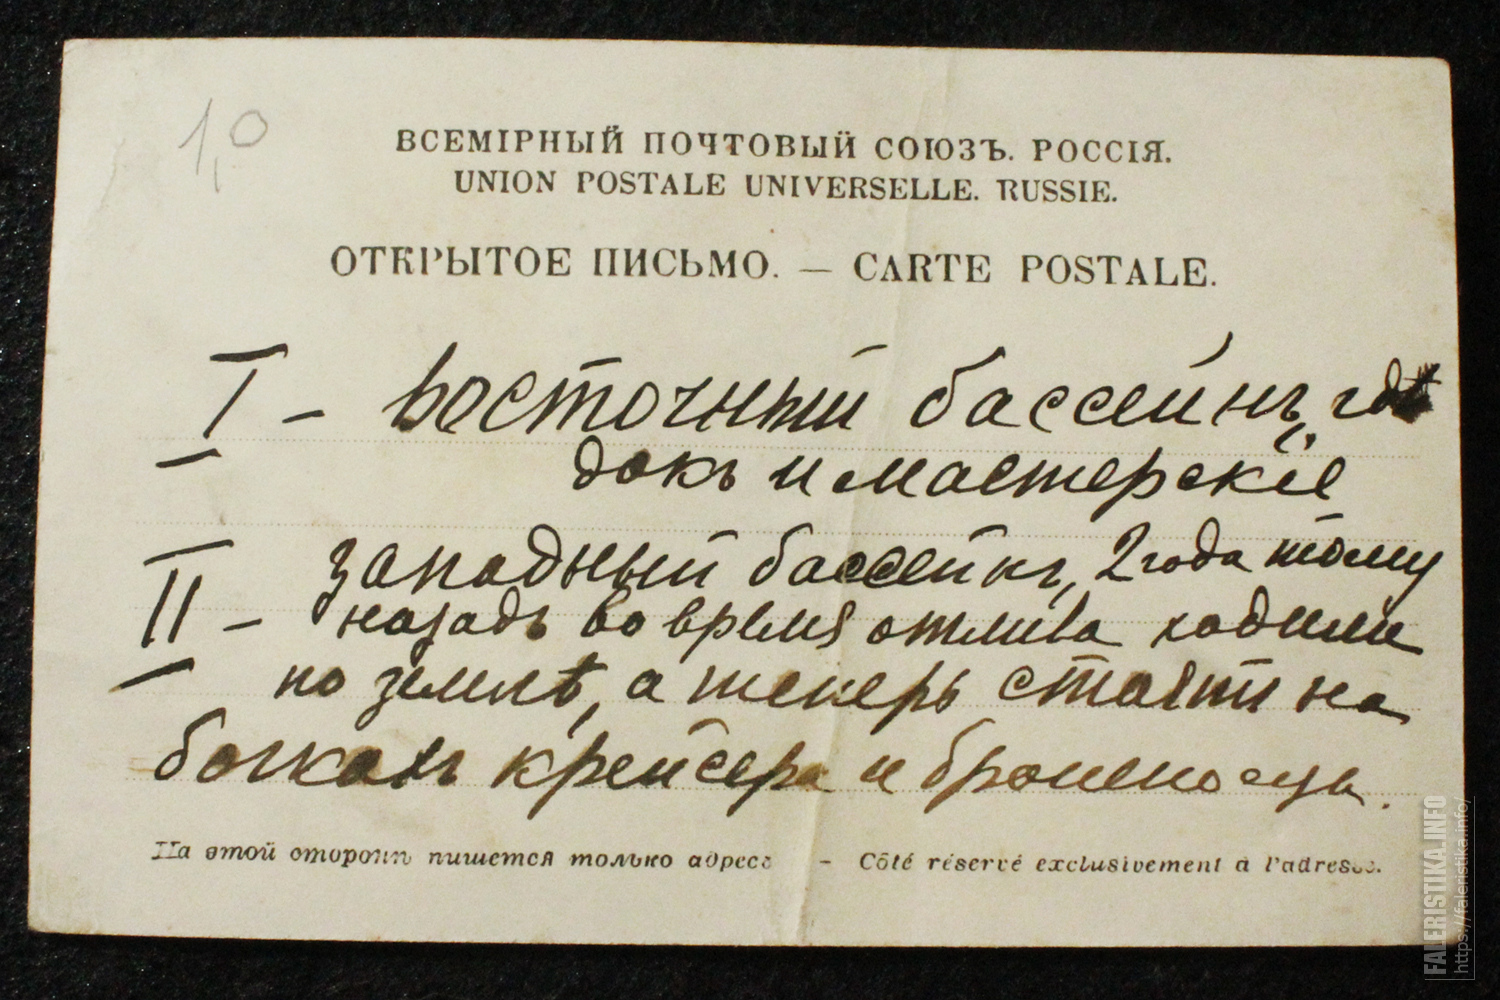 1,0
ВСЕМІРНЫЙ ПОЧТОВЫЙ СОЮЗЪ. РОССІЯ.
UNION POSTALE UNIVERSELLE. RUSSIE.
ОТКРЫТОЕ ПИСЬМО. — CARTE POSTALE.
I – Восточный бассейнъ, гдѣ
докъ и мастерскіе
II – Западный бассейнъ, 2 года тому
назадъ во время отлива ходили
по землѣ, а теперь стоятъ на
бочкахъ крейсера и броненосцы.
На этой сторонѣ пишется только адресъ – Côté réservé exclusivement à l'adresse.
FALERISTIKA.INFO
https://faleristika.info/